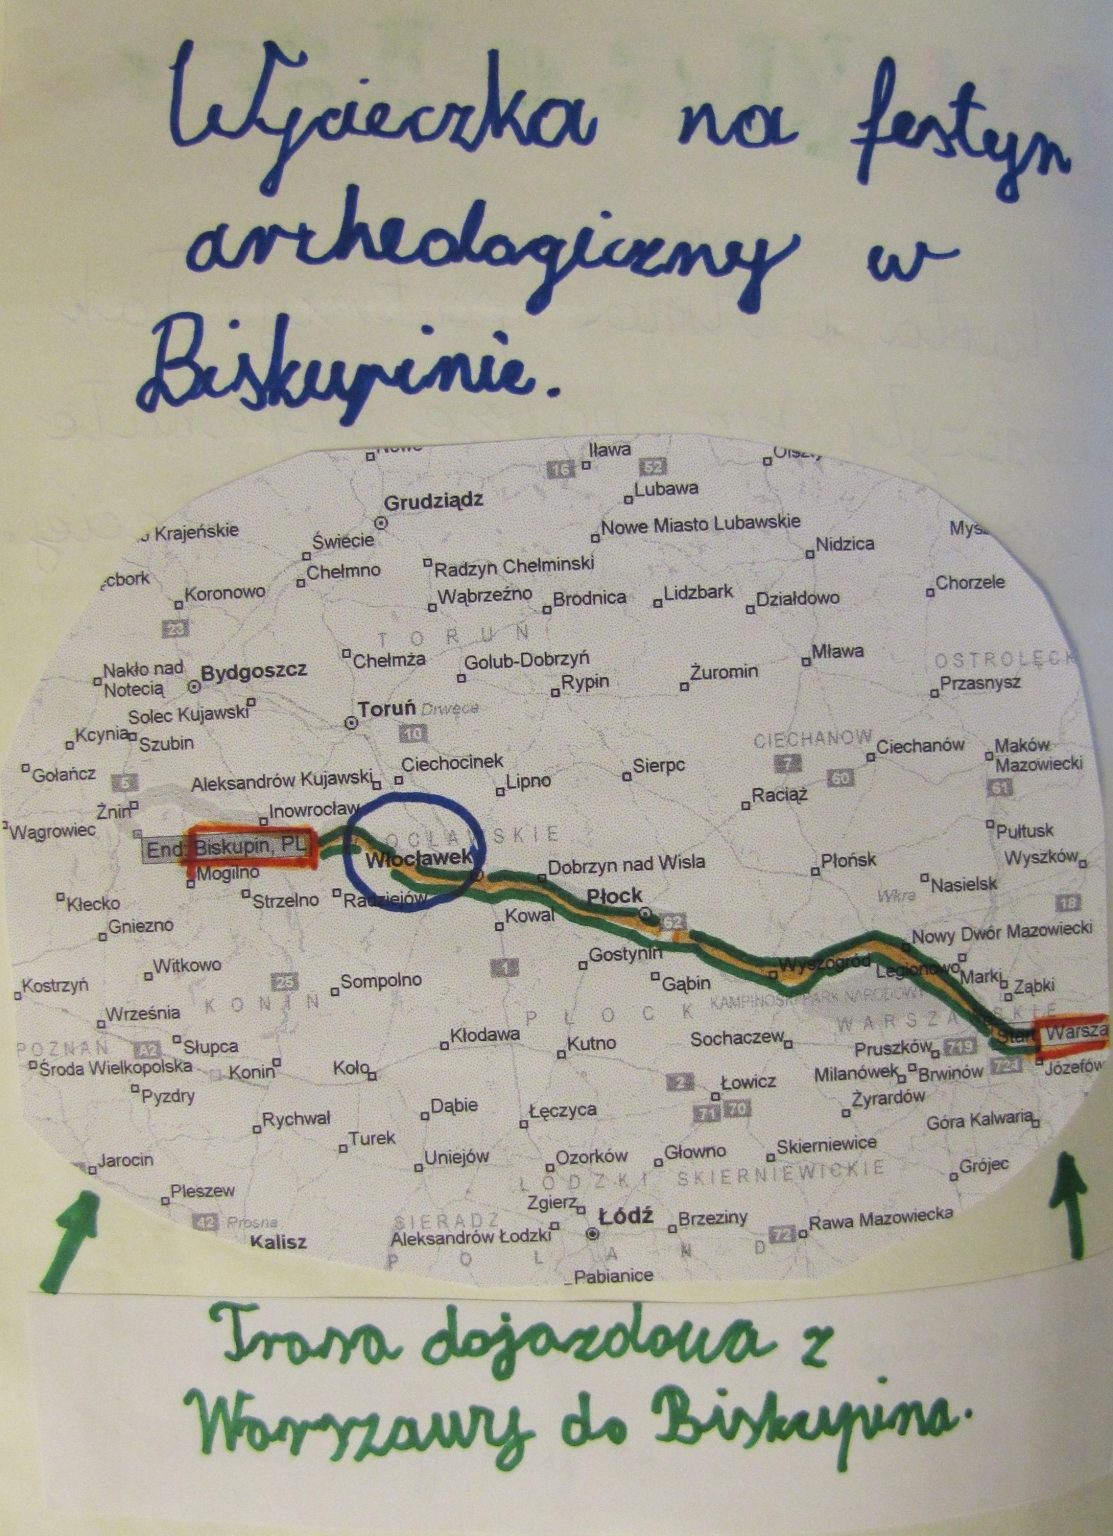 Wycieczka na festyn
archeologiczny w
Biskupinie.
Iława
16
52
Lubawa
Grudziądz
Krajeńskie
Świecie
Nowe Miasto Lubawskie
Nidzica
Chełmno
Radzyn Chełminski
Koronowo
Wąbrzeźno
Brodnica
Lidzbark
Działdowo
Chorzele
23
TORUŃ
Nakło nad
Notecią
Bydgoszcz
Chełmża
Golub-Dobrzyń
Rypin
Żuromin
Mława
Przasnysz
Solec Kujawski
Toruń
Drwęca
10
Kcynia
Szubin
CIECHANÓW
Ciechanów
Maków
Mazowiecki
Gołańcz
5
Aleksandrów Kujawski
Ciechocinek
Lipno
Sierpc
7
60
61
Żnin
Inowrocław
Raciąż
Wągrowiec
End: Biskupin, PL
Pułtusk
Włocławek
Dobrzyn nad Wisla
Płońsk
Wyszków
Mogilno
Strzelno
Radziejów
Płock
Wkra
Nasielsk
18
Kłecko
Gniezno
Kowal
62
Nowy Dwór Mazowiecki
Witkowo
Gostynin
Wyszogród
Legionowo
Marki
Kostrzyń
25
Sompolno
1
Gąbin
Ząbki
KONIN
PŁOCK
KAMPINOSKI PARK NARODOWY
WARSZAWSKIE
Września
Kłodawa
Kutno
Sochaczew
Start: Warsza
POZNAŃ
A2
Słupca
Pruszków
719
724
Środa Wielkopolska
Konin
Koło
2
Łowicz
Milanówek
Brwinów
Józefów
Pyzdry
Dąbie
Łęczyca
71
70
Żyrardów
Rychwał
Góra Kalwaria
Turek
Uniejów
Ozorków
Głowno
Skierniewice
Jarocin
ŁÓDZKI
SKIERNIEWICKIE
Grójec
Pleszew
Zgierz
42
Prosna
SIERADZ
Łódź
Brzeziny
Kalisz
Aleksandrów Łodzki
72
Rawa Mazowiecka
POLAND
Pabianice
Trasa dojazdowa z
Warszawy do Biskupina.